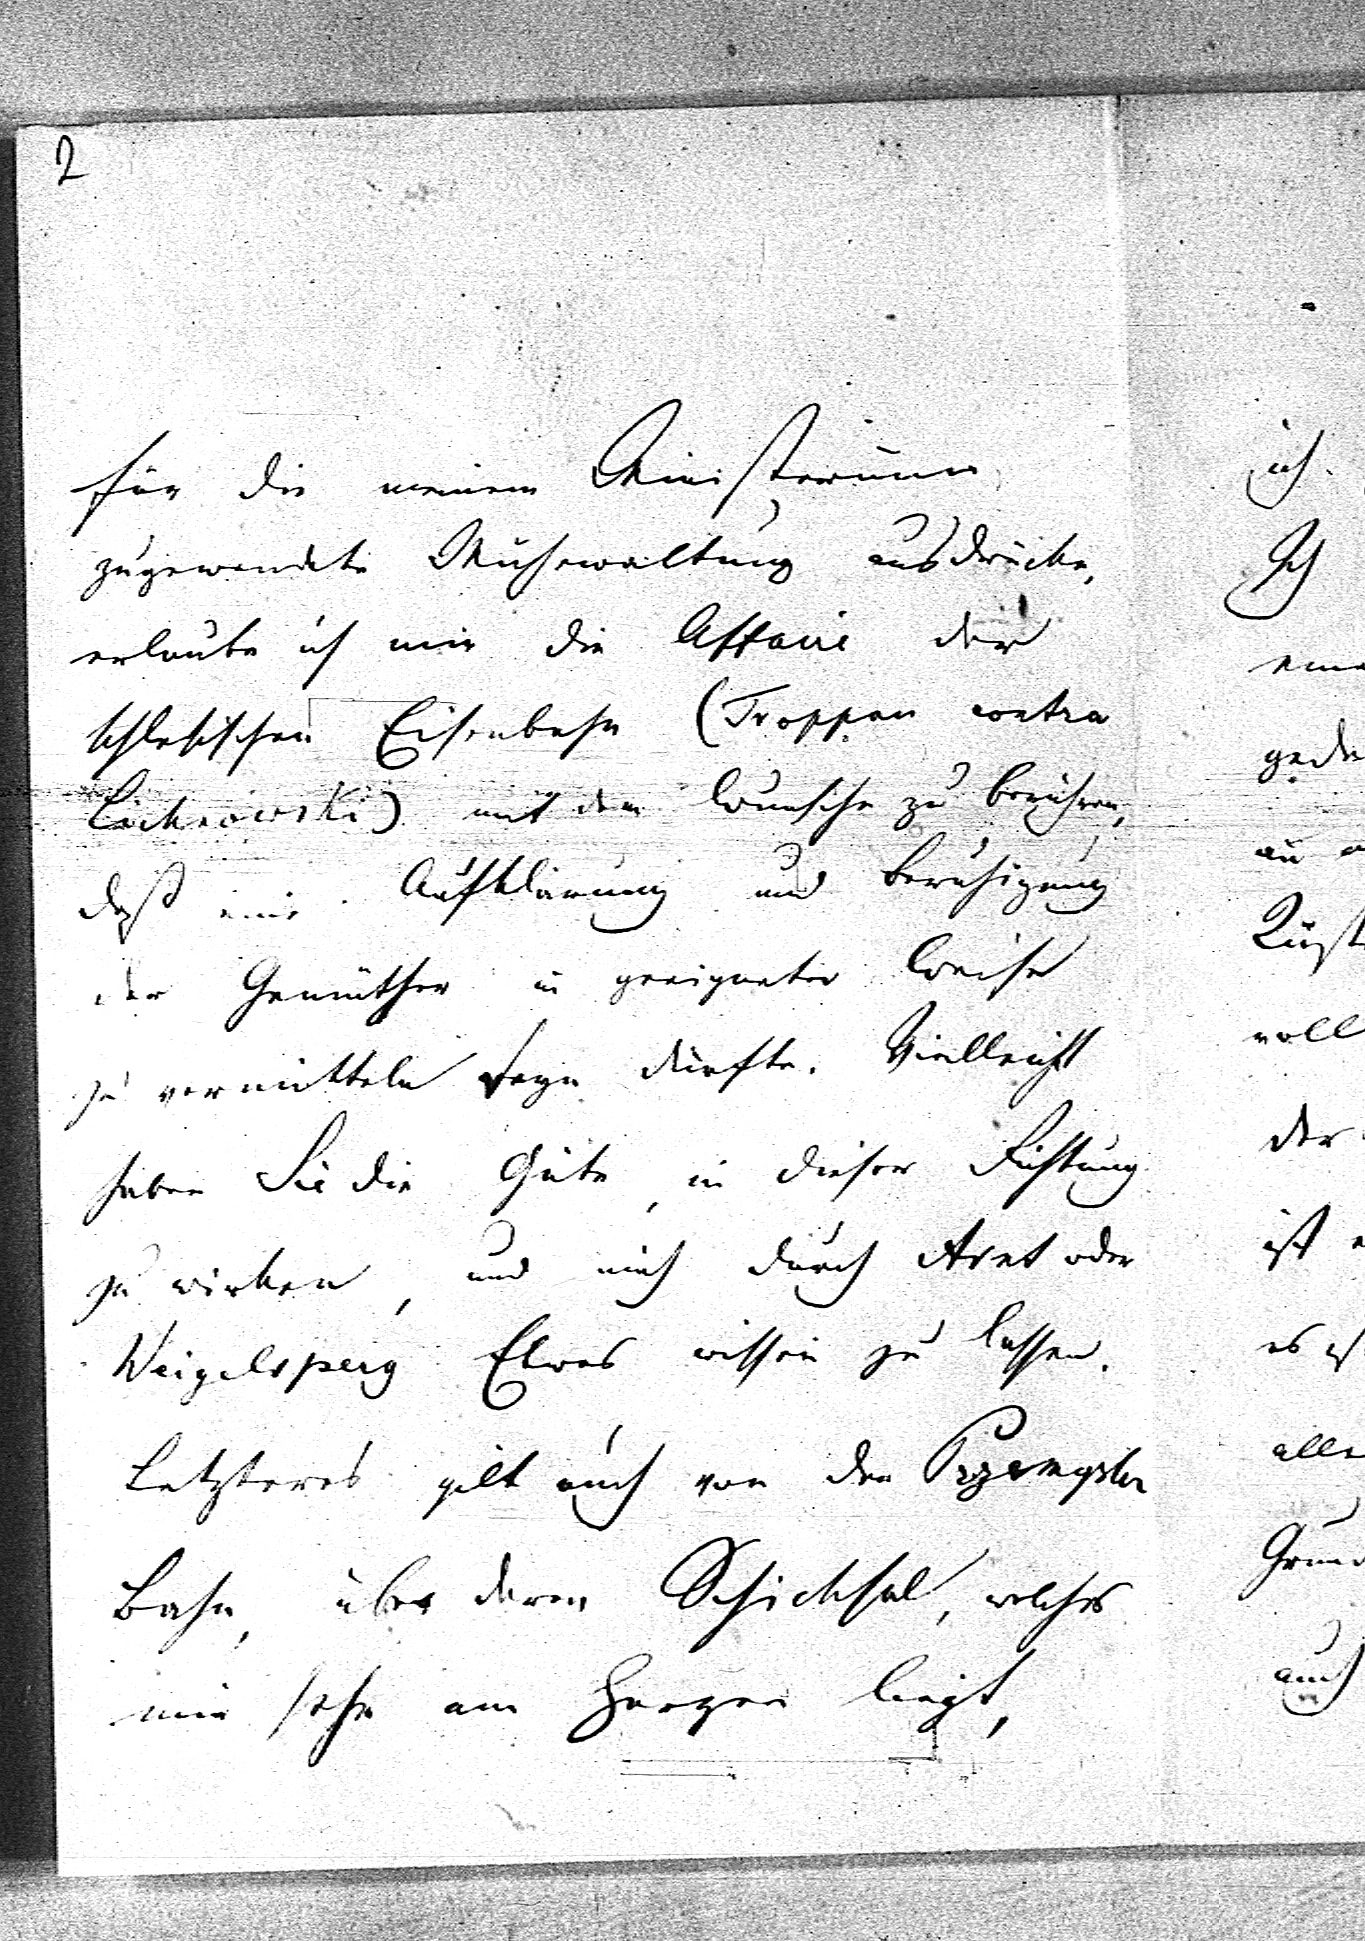 2
für die meinem Ministerium
zugewendete Mühewaltung ausdrücke,
erlaube ich mir die Affaire der
schlesischen Eisenbahn (Troppau contra
Lichnowski) mit dem Wunsche zu berühren,
daß eine Aufklärung und Beruhigung
der Gemüther in geeigneter Weise
zu vermitteln seyn dürfte. Vielleicht
haben Sie die Güte, in dieser Richtung
zu wirken, und mich durch Arnt oder
Weigelsperg Etwas wissen zu lassen.
Letzteres gilt auch von der Przemysler
Bahn, über deren Schicksal, welches
mir sehr am Herzen liegt,
ich
Ich
gede
an
voll
der
ist
es
alle
Grund
auch